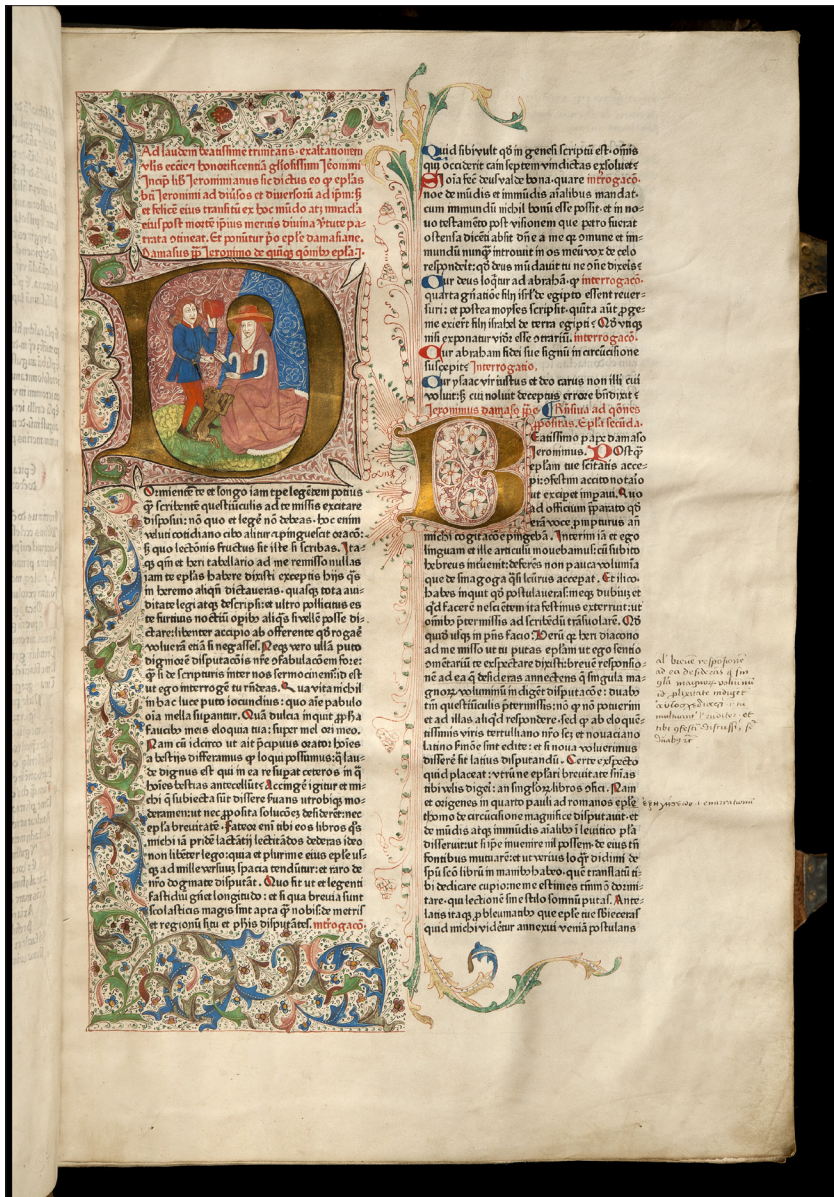 Ad laudem beatissime trinitatis · exaltationem
vlis eccl'ie ⁊ honorificentiā gl'iosissimi Iēonimi
Incip̄ lib̄ Ieronimianus sic dictus eo ꝙ ep̄las
bt̄i Ieronimi ad diu̾sos et diuersoꝝ ad ip̄m:
et felicē eius trāsitū ex hoc mūdo atꝫ miracl'a
eius post mortē ip̄ius meritis diuina v̾tute pa-
trata ɔtineat. Et ponūtur p̄o ep̄le damasiane.
Damasus pp̄ Ieronimo de quinqꝫ q̄onibꝫ ep̄la·i·
Dormientē te et longo iam tp̄e legētem potius
ꝙ̄ scribentē questiūculis ad te missis excitare
disposui: nō quo et legē nō debeas· hoc enim
veluti cotidiano cibo alitur ⁊ pinguescit oracō:
sꝫ quo lectōnis fructus sit iste si scribas. Ita-
qꝫ qm̄ et heri tabellario ad me remisso nullas
iam te ep̄las habere dixisti exceptis hijs q̄s
in heremo aliqn̄ dictaueras· quasqꝫ tota aui-
ditate legi atqꝫ descripsi: et ultro pollicitus es
te furtiuis noctiū opib̾ aliq̄s si vellē posse di-
ctare: libenter accipio ab offerente q̄d rogaē
voluerā etiā si negasses. Neqꝫ vero ullā puto
dignorē disputacōis nr̄e ɔfabulacōem fore:
ꝙ̄ si de scripturis inter nos sermocinem̄: id est
ut ego interrogē tu rn̄deas. Qua vita nichil
in hac luce puto iocundius: quo aīe pabulo
oīa mella supantur. Quā dulcia inquit ꝓph̄a
faucibꝫ meis eloquia tua: super mel ori meo.
Nam cū idcirco ut ait p̄cipuus orator hoīes
a bestijs differamus ꝙ loqui possumus: q̄ lau-
de dignus est qui in ea re supat ceteros in q̄
hoīes bestias antecellūt? Accingē igitur et mi-
chi q̄ subiecta sūt dissere suans utrobiqꝫ mo-
deramen: ut nec ꝓposita solucōeꝫ desiderēt: nec
ep̄la breuitatē. Fateor em̄ tibi eos libros q̄s
michi iā pridē lactātij lectitādos dederas ideo
non libēter lego: quia et plurime eius ep̄le us-
qꝫ ad mille versuū spacia tendūtur: et raro de
nr̄o dogmate disputāt. Quo fit ut et legenti
fastidiū gn̄et longitudo: et si qua breuia sunt
scolasticis magis sint apta ꝙ̄ nobis: de metris
et regionū situ et ph̄is disputātes. int̄rogacō
Quid sibi vult q̄d in genesi scriptū est· om̄is
qui occiderit cain septem vindictas exsoluet?
Si oīa fec̄ deus valde bona· quare int̄rogacō.
noe de mūdis et immūdis aīalibus mandat·
cum immundū nichil bonū esse possit· et in no-
uo testamēto post visionem que petro fuerat
ostensa dicēti absit dn̄e a me ꝙ ɔmune et im-
mundū nunqꝫ introiuit in os meū· vox de celo
respondeit: q̄d deus mūdauit tu ne ɔīne dixeis?
Cur deus loq̄tur ad abrahā· ꝙ interrogacō·
quarta gn̄atiōe filij isrl' de egipto essent reuer-
suri: et postea moyses scripsit· quīta aūt ꝓge-
nie exierūt filij israhel de terra egipti? Q̄d vtiqꝫ
nisi exponatur videt̄ esse ɔtrariū. interrogacō.
Cur abraham fidei sue signū in circūcisione
suscepit? Interrogatio.
Cur ysaac vir iustus et deo carus non illi cui
voluit: sꝫ cui noluit deceptus errore bn̄dixit?
Ieronimus damaso pp̄e Rn̄siua ad q̄ones
ꝓpositas. Ep̄la secūda.
Beatissimo pape damaso
Ieronimus. Postqꝫ
ep̄lam tue scītatis acce-
pi: ɔfestim accito notaīo
ut exciperet impaui. Quo
ad officium p̄parato q̄d
erā voce ꝓmpturus an̄
michi cogitacōe pingebā. Interim iā et ego
linguam et ille articulū mouebamus: cū subito
hebreus intuenit: deferēs non pauca volumīa
que de sinagoga q̄si lc̄urus accepat. Et ilico·
habes inquit q̄d postulaueras: meqꝫ dubiū et
q̄d facerē nesciētem ita festinus exterruit: ut
om̄ibꝫ p̄termissis ad scribēdū trāsuolarē. Q̄d
quidē usqꝫ in p̄ns facio. Verū q̄ heri diacono
ad me misso ut tu putas ep̄lam ut ego sentio
ɔmentariū te expectare dixisti: breuē responsio-
nē ad ea q̄ desideras annectens q̄ singula ma-
gnoꝝ voluminū indigēt disputacōe: duabꝫ
tm̄ questiūculis p̄termissis: nō q̄ nō potuerim
et ad illas aliq̄d respondere· sed ꝙ ab eloquē-
tissimis viris tertulliano nr̄o sc̄ꝫ et nouaciano
latino s̾mōne sint edite: et si noua voluerimus
disserē sit latius disputandū. Certe expecto
quid placeat: vtrū ne ep̄lari breuitate s̄nias
tibi velis digei: an singl'oꝝ libros ɔfici. Nam
et origenes in quarto pauli ad romanos ep̄le
thomo de circūcisione magnifice disputauit· et
de mūdis atqꝫ immūdis aīalibꝫ ī leuitico pl'a
disseruit: ut si ip̄e inuenire nil possem· de eius tn̄
fontibus mutuarē: et ut verius loq̄r didimi de
spū sc̄o librū in manibꝫ habeo· quē translatū ti-
bi dedicare cupio: ne me estimes tm̄mō dormi-
tare· qui lectionē sine stilo somnū putas. Ante-
latis itaqꝫ ꝓbleumatibꝫ que ep̄le tue sb̾ieceras
quid michi videt̄ur annexui· veniā postulans
al' breuē respōsionē
ad ea desideras
tibi ɔfessi discussi, s
duabꝫ